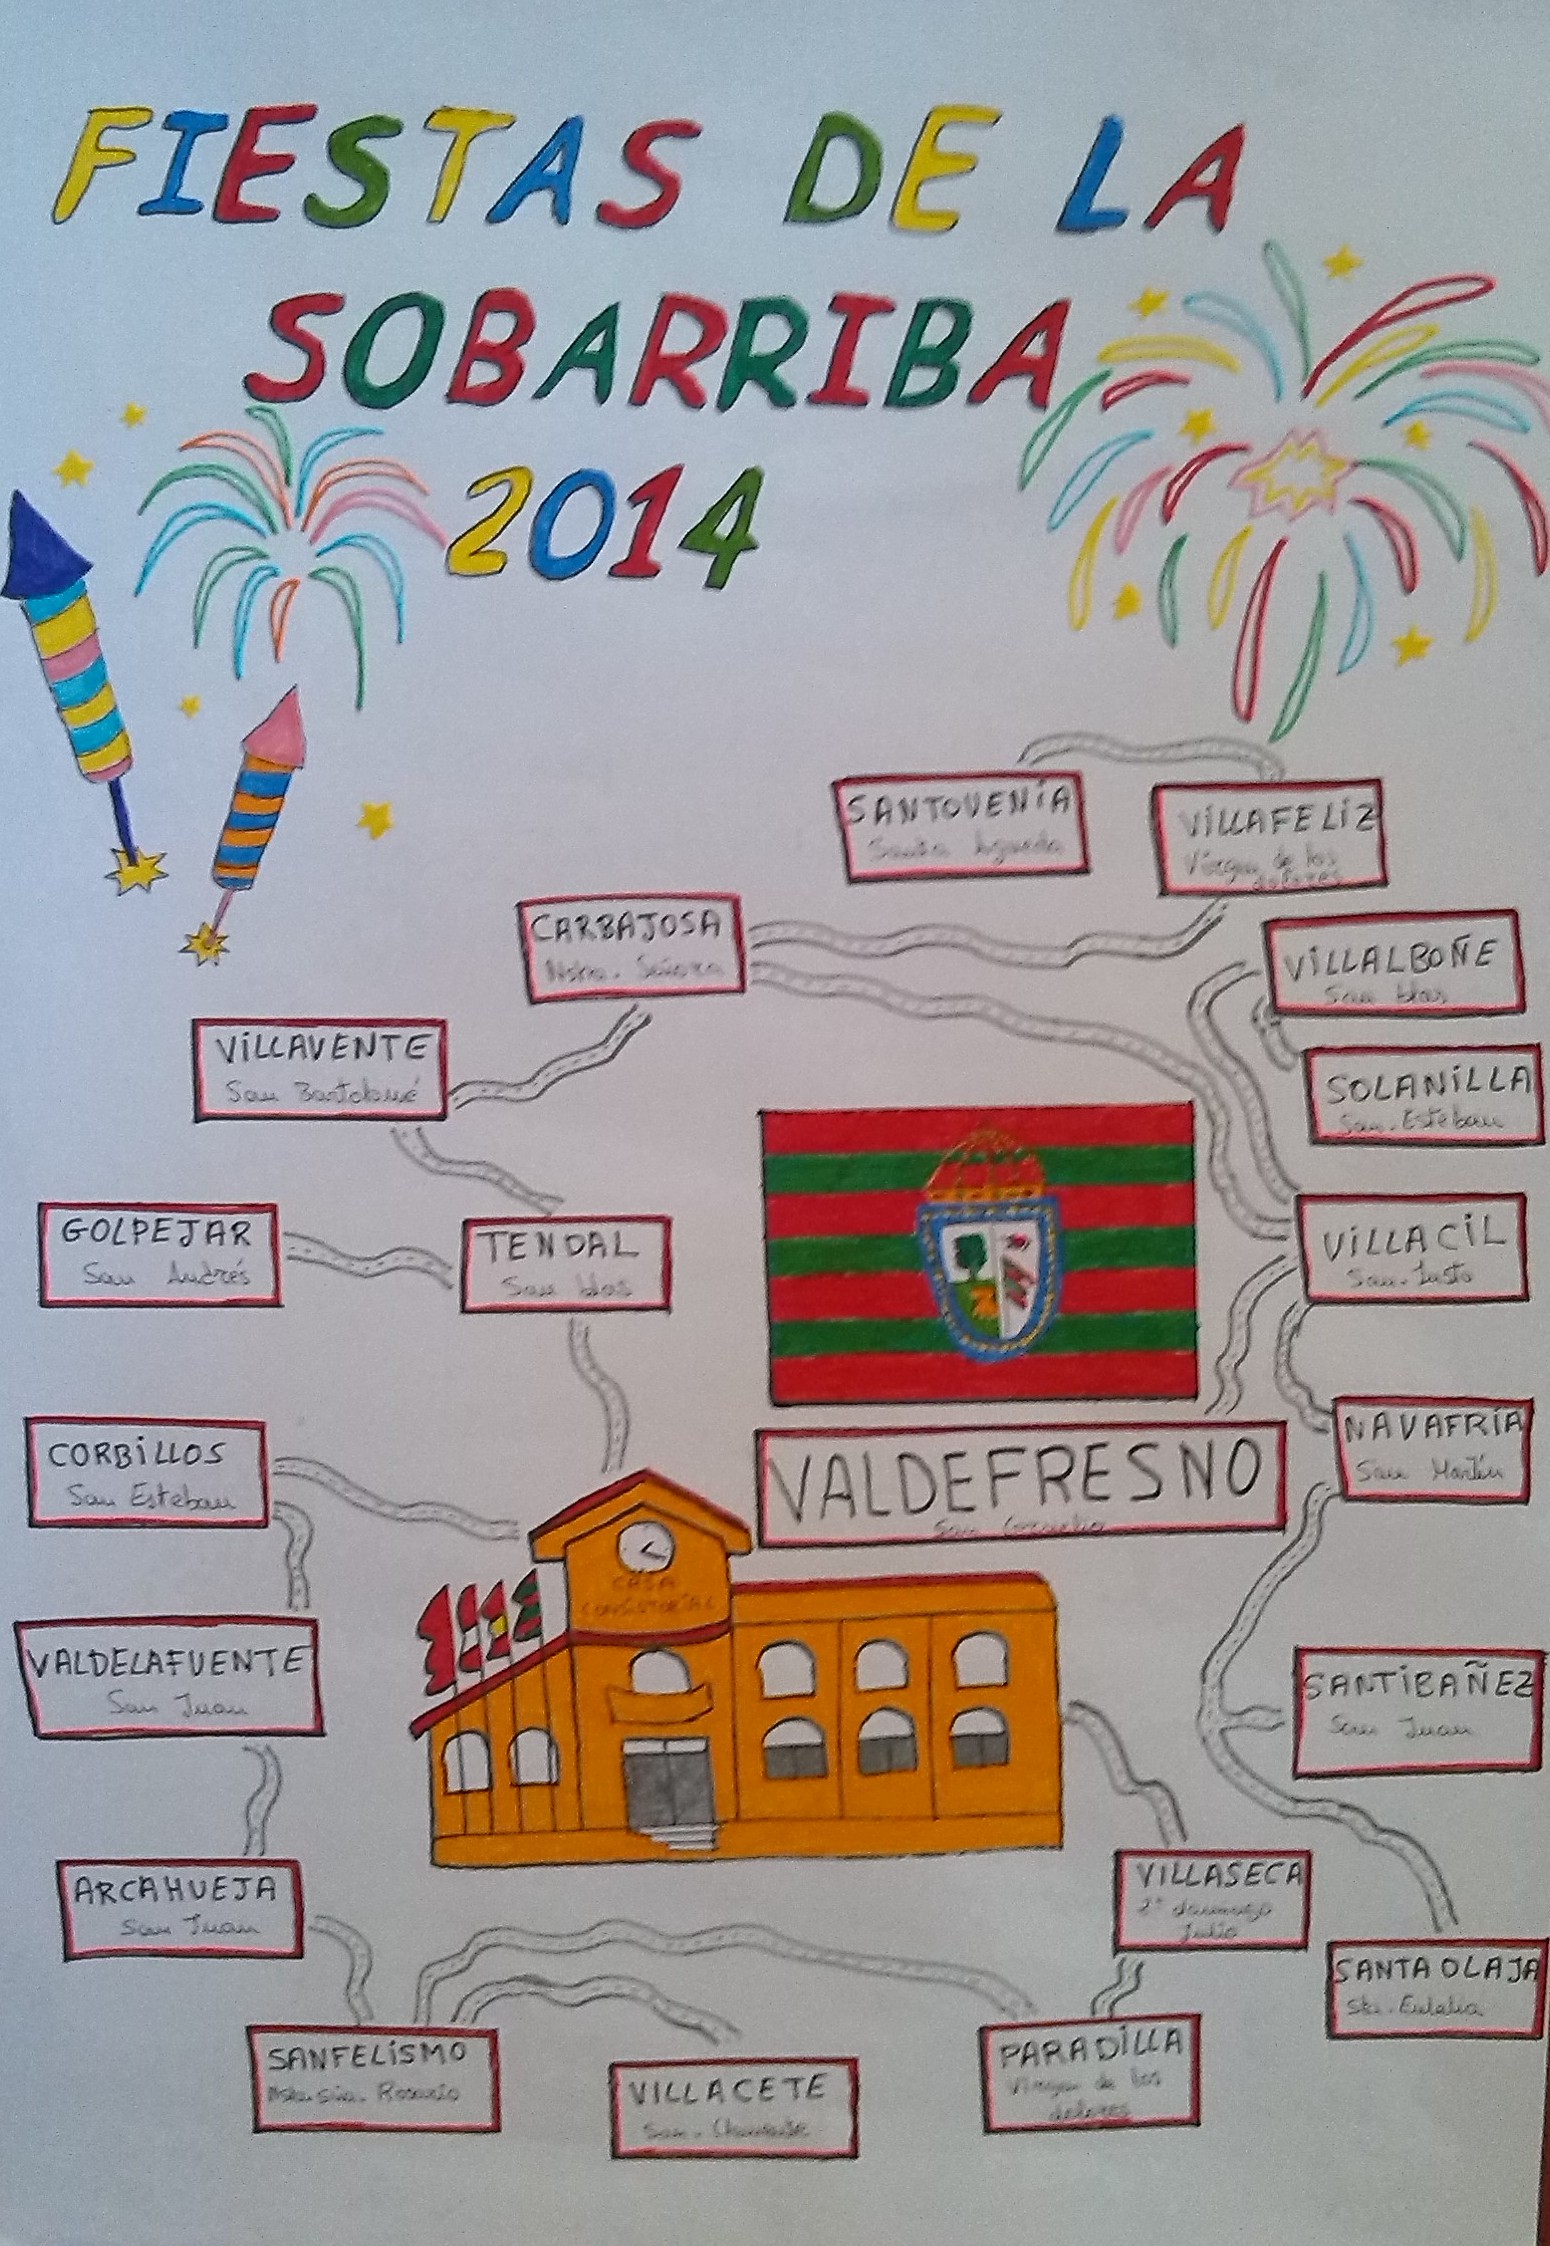 FIESTAS DE LA
SOBARRIBA
2014
SANTOVENÍA
Santa Agueda
VILLAFELIZ
Virgen de los
dolores
CARBAJOSA
Nstra. Señora
VILLALBOÑE
San blas
VILLAVENTE
San Bartolomé
SOLANILLA
San. Esteban
GOLPEJAR
San Andrés
TENDAL
San blas
VILLACIL
San. Justo
CORBILLOS
San Esteban
VALDEFRESNO
San
NAVAFRÍA
San Martín
CASA
CONSISTORIAL
VALDELAFUENTE
San Juan
SANTIBAÑEZ
San Juan
ARCAHUEJA
San Juan
VILLASECA
2º domingo
Julio
SANTA OLAJA
Sta. Eulalia
SANFELISMO
Rosario
VILLACETE
San. Clemente
PARADILLA
Virgen de los
dolores